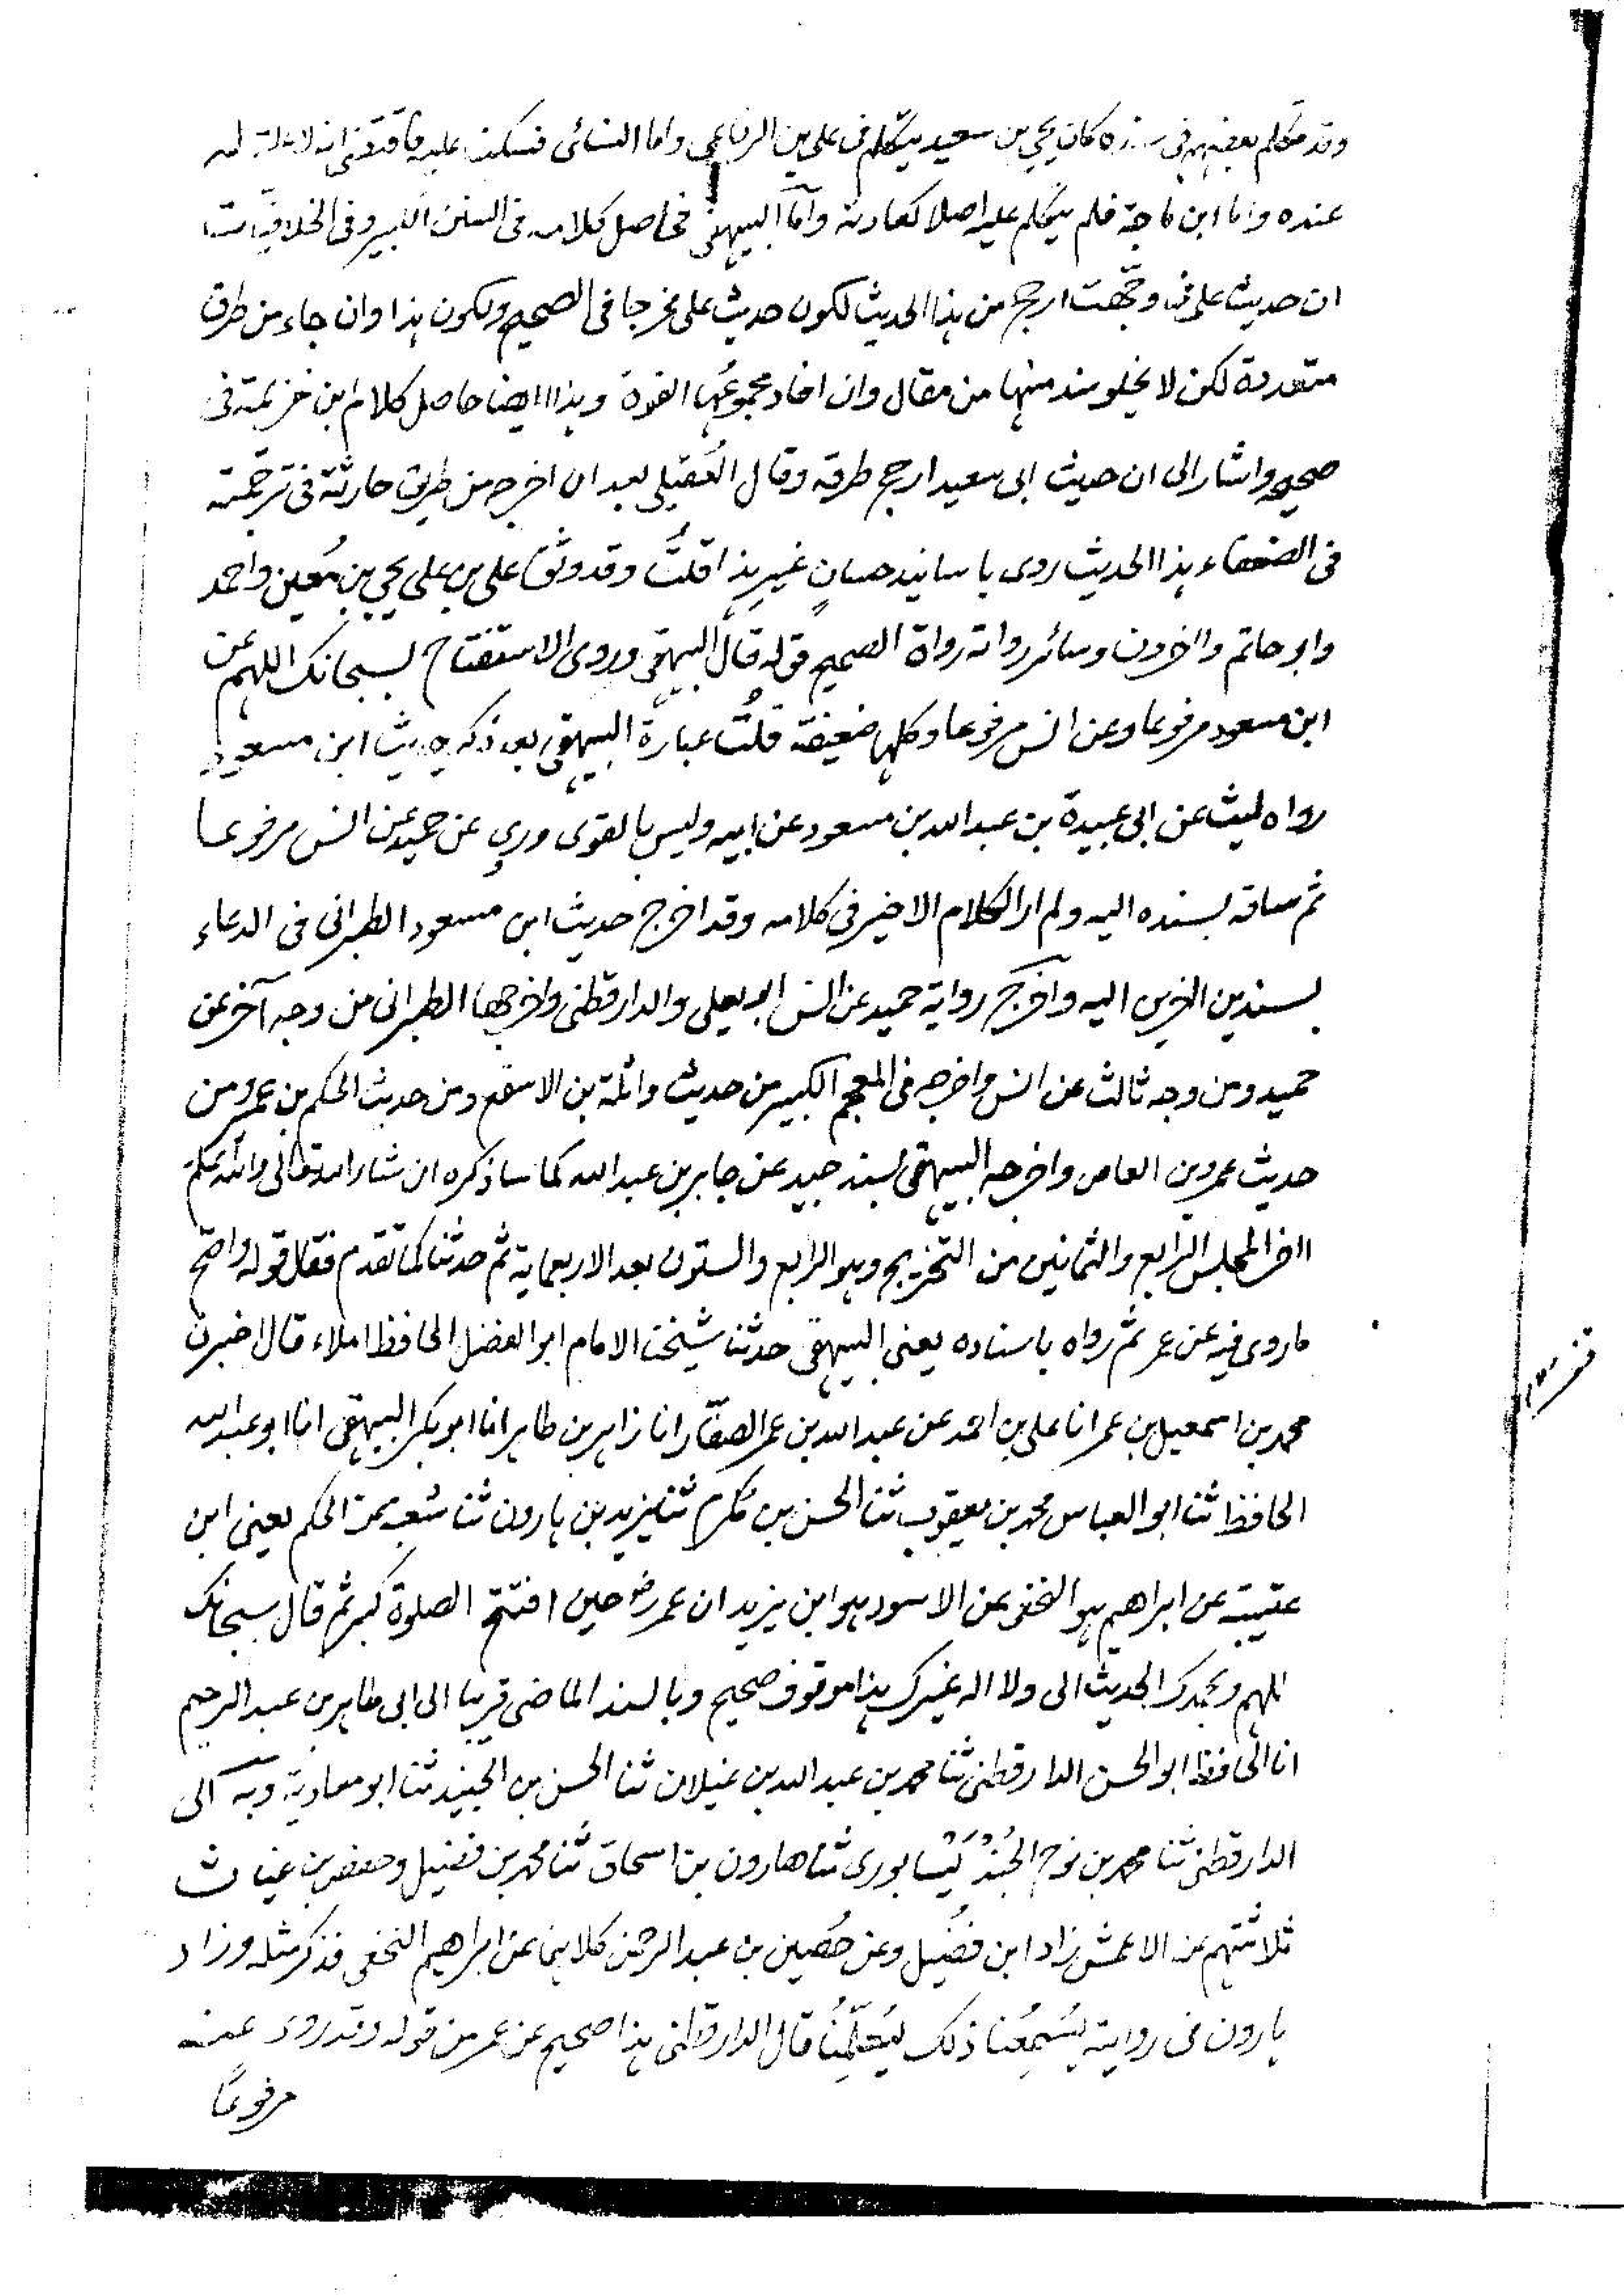 وقد تكلم بعضهم في سنده كان يحيى بن سعيد يتكلم في علي بن الرفاعي واما النسائي فسكت عليه فاقتضى انه لا علة له
عنده واما ابن ماجة فلم يتكلم عليه اصلا كعادته وأما البيهقي فحاصل كلامه في السنن الكبير وفي الخلافيات
ان حديث علي في وجهت ارجح من هذا الحديث لكون حديث علي مخرجا في الصحيح ولكون هذا وان جاء من طرق
متعددة لكن لا يخلو سند منها من مقال وان افاد مجموعُها القوة وهذا ايضا حاصل كلام ابن خزيمة في
صحيحه واشار الى ان حيث ابي سعيد ارجح طرقه وقال العُقيلي بعد ان اخرجه من طريق حارثة في ترجمته
في الضعفاء هذا الحديث روى باسانيد حسانٍ غير هذا قلتُ وقد وثق علي بن علي يحيى بن مُعين واحمد
وابو حاتم واخرون وسائر رواته رواة الصحيح قوله قال البيهقي وروى الاستفتاح بسبحانك اللهم عن
ابن مسعود مرفوعا وعن انس مرفوعا وكلها ضعيفة قلتُ عبارة البيهقي بعد ذكره حديث ابن مسعود
رواه ليث عن ابي عبيدة بن عبد الله بن مسعود عن ابيه وليس بالقوى وروي عن حميد عن انس مرفوعا
ثم ساقه بسنده اليه ولم ار الكلام الاخير في كلامه وقد اخرج حديث ابن مسعود الطبراني في الدعاء
بسندين اخرين اليه واخرج رواية حميد عن انس ابو يعلى والدارقطني واخرجها الطبراني من وجه آخر عن
حميد ومن وجه ثالث عن انس واخرجه في المعجم الكبير من حديث واثلة بن الاسقع ومن حديث الحكم بن عمير ومن
حديث عمرو بن العاص واخرجه البيهقي بسند جيد عن جابر بن عبد الله كما ساذكره ان شاء الله تعالى والله اعلم
اخر المجلس الرابع والثمانين من التخريج وهو الرابع والستون بعد الاربعماية ثم حدثنا كما تقدم فقال قوله واصح
ما روى فيه عن عمر ثم رواه باسناده يعني البيهقي حدثنا شيخنا الامام ابو الفضل الحافظ املاء قال اخبرنا
محمد بن اسمعيل بن عمر انا علي بن احمد عن عبد الله بن عمر الصفّار انا زاهر بن طاهر انا ابو بكر البيهقي انا ابو عبد الله
الحافظ ثنا ابو العباس محمد بن يعقوب ثنا الحسن بن مُكرم ثنا يزيد بن هارون ثنا شعبة عن الحكم يعني ابن
عتيبة عن ابراهيم هو النخعي عن الاسود هو ابن يزيد ان عمر رض حين افتتح الصلوة كبر ثم قال سبحانك
اللهم وبحمدك الحديث الى ولا اله غيرك هذا موقوف صحيح وبالسند الماضي قريبا الى ابي طاهر بن عبد الرحيم
انا الحافظ ابو الحسن الدارقطني ثنا محمد بن عبد الله بن غيلان ثنا الحسن بن الجنيد ثنا ابو معاوية وبه الى
الدارقطني ثنا محمد بن نوح الجُنْدَيْسابوري ثنا هارون بن اسحاق ثنا محمد بن فضيل وحفص بن غياث
ثلاثتهم عن الاعمش زاد ابن فضُيل وعن حُصين بن عبد الرحمن كلاهما عن ابراهيم النخعي فذكر مثله وزاد
هارون في رواية يُسْمِعُنا ذلك ليُعَلِّمُنا قال الدارقطني هذا صحيح عن عمر من قوله وقد روى عنه
مرفوعًا